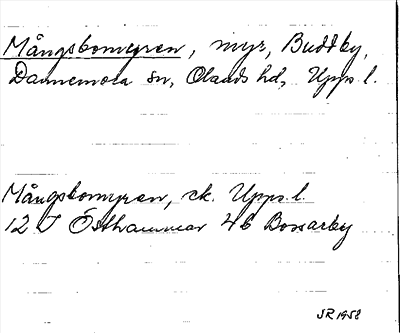 Mångsbomyren, myr, Buddby,
Dannemora sn, Olands hd, Upps. l.
Mångsbomyren, ek. Upps. l.
12 I Östhammar 4b Bossarby
JR 1958